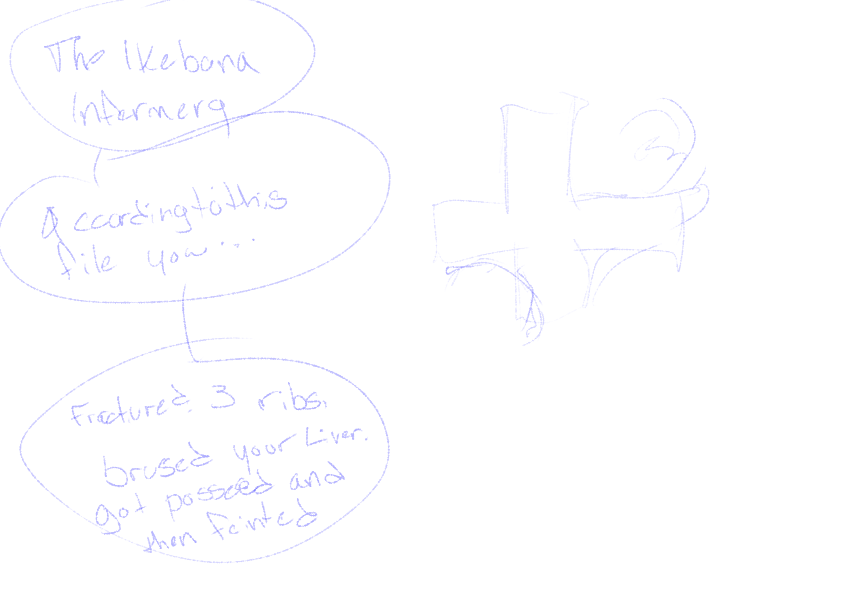 The Ikebana
Infermery
Accordingtothis
file you...
Fractured 3 ribs.
brused your Liver.
got posseed and
then feinted